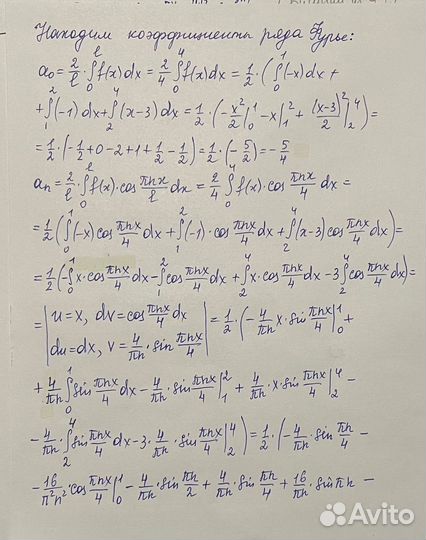 Находим коэффициенты ряда Фурье:
a₀ = 2/l · ∫₀ˡ f(x)dx = 2/4 ∫₀⁴ f(x)dx = 1/2 · (∫₀¹(-x)dx +
+ ∫₁²(-1)dx + ∫₂⁴(x-3)dx = 1/2 · (-x²/2|₀¹ - x|₁² + (x-3)²/2|₂⁴) =
= 1/2 · (-1/2 + 0 - 2 + 1 + 1/2 - 1/2) = 1/2 · (-5/2) = -5/4
aₙ = 2/l · ∫₀ˡ f(x)·cos πnx/l dx = 2/4 ∫₀⁴ f(x)·cos πnx/4 dx =
= 1/2 (∫₀¹(-x)cos πnx/4 dx + ∫₁²(-1)·cos πnx/4 dx + ∫₂⁴(x-3)cos πnx/4 dx) =
= 1/2 (-∫₀¹ x·cos πnx/4 dx - ∫₁² cos πnx/4 dx + ∫₂⁴ x·cos πnx/4 dx - 3∫₂⁴ cos πnx/4 dx) =
= | u = x, dv = cos πnx/4 dx
du = dx, v = 4/πn · sin πnx/4 | = 1/2 · (-4/πn x·sin πnx/4|₀¹ +
+ 4/πn ∫₀¹ sin πnx/4 dx - 4/πn · sin πnx/4|₁² + 4/πn · x·sin πnx/4|₂⁴ -
- 4/πn · ∫₂⁴ sin πnx/4 dx - 3 · 4/πn · sin πnx/4|₂⁴) = 1/2 · (-4/πn · sin πn/4 -
- 16/π²n² · cos πnx/4|₀¹ - 4/πn · sin πn/2 + 4/πn · sin πn/4 + 16/πn · sin πn -
Avito